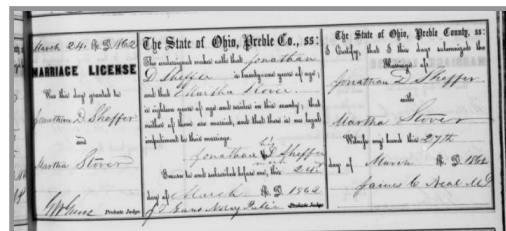 March 24. A. D. 1862
MARRIAGE LICENSE
Was this day granted to
Jonathan D. Sheffer
and
Martha Stover
Probate Judge.
The State of Ohio, Preble Co., ss:
The undersigned makes oath that Jonathan
D. Sheffer is twenty-one years of age;
and that Martha Stover
is eighteen years of age and resides in this county; that
neither of them are married, and that there is no legal
impediment to their marriage.
his
Jonathan D. Sheffer
mark
Sworn to and subscribed before me, this 24th
day of March A. D. 1862
Notary Public Probate Judge
The State of Ohio, Preble County, ss:
I Certify, that I this day solemnized the
Marriage of
Jonathan D. Sheffer
with
Martha Stover
Witness my hand this 27th
day of March A. D. 1862
James C. Neal